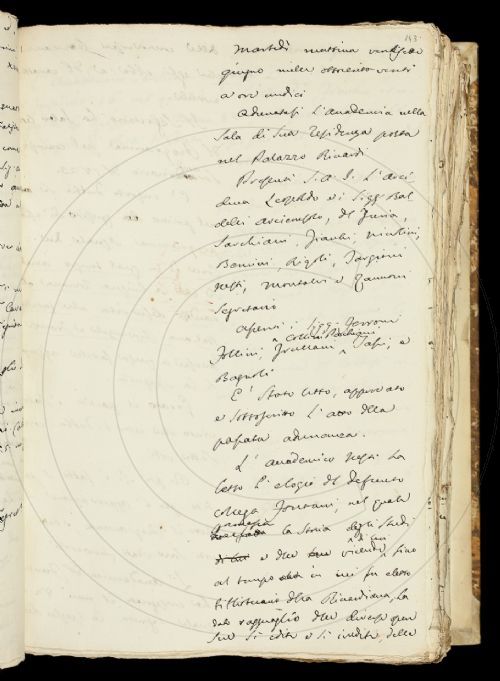 143
Martedì mattina ventisette
giugno mille ottocento venti
a ore undici
Adunatasi l'Accademia nella
Sala di Sua residenza posta
nel Palazzo Riccardi
Presenti S. A. I. L'Arci
duca Leopoldo e i Sigg. Bal
delli arciconsolo, del Furia,
Sarchiani, Zianchi, Niccolini,
Bencini, Rigoli, Targioni
Nesti, Montalvi e Zannoni
Segretario
Assenti i Sigg. Ferroni
Collini
Follini, Fontani, e
Bagnoli
E' stato letto, approvato
e sottoscritto l'atto della
passata adunanza.
L' accademico Nesti ha
letto l'elogio del defunto
collega Fontani, nel quale
la storia degli studi
di lui
e delle vicende sino
al tempo in cui fu eletto
bibliotecario della Riccardiana, ha
dato ragguaglio delle diverse opere
sue sì edite e sì inedite, delle